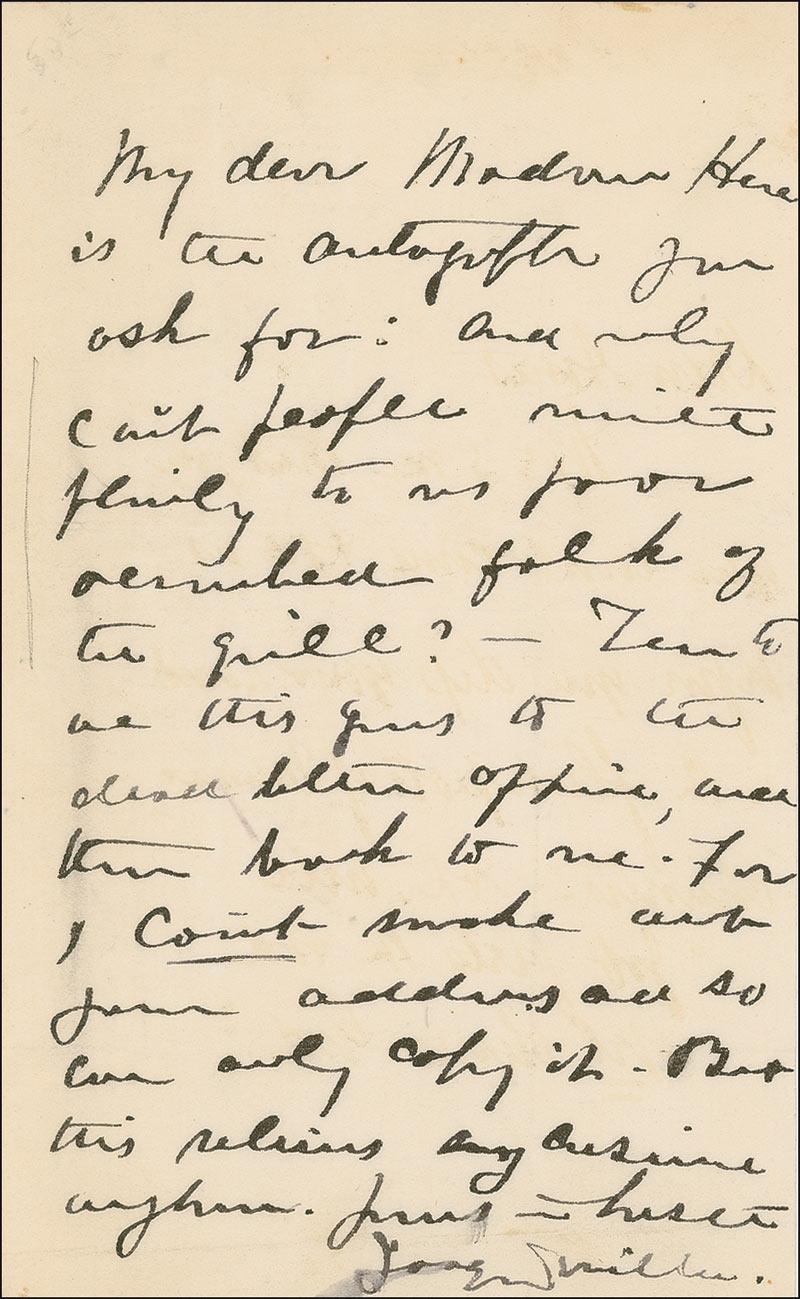 My dear Madam Here
is the autograph you
ask for: and why
can't people write
plainly to us poor
folk of
the quill? — Ten to
one this goes to the
dead letter office, and
then back to me. For
I can't make out
your address and so
can only copy it. But
this relieves my
anyhow. Yours in haste
Joaquin Miller.